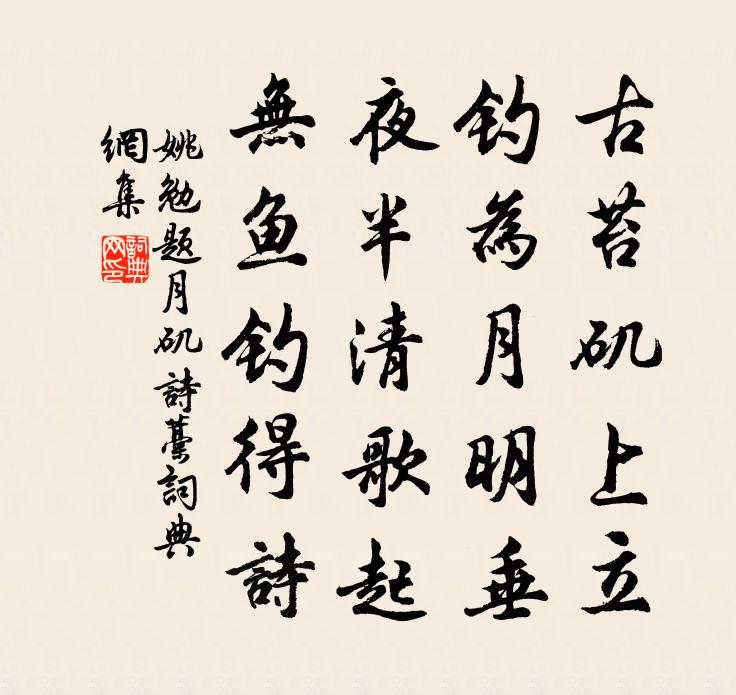 古苔矶上立
钓為月明垂
夜半清歌起
無鱼钓得詩
姚勉题月矶詩藁詞典
網集
詞典
网印